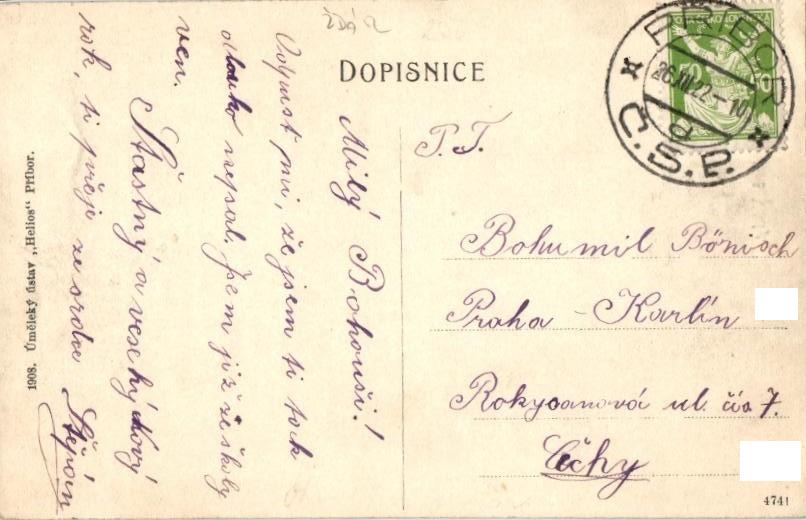 ŽDÁR
DOPISNICE
PŘÍBOR
26.XII.22.-10
d
Č.S.P.
POŠTA ČESKOSLOVENSKÁ
50
Milý Bohouši!
Odpusť mi, že jsem ti tak
dlouho nepsal. Jsem již ze školy
ven.
Šťastný a veselý Nový
rok, ti přeje ze srdce
Štěpán
P.T.
Bohumil Bönisch
Praha - Karlín
Rokycanová ul. čís 7.
Čechy
1908. Umělecký ústav „Helios" Příbor.
4741